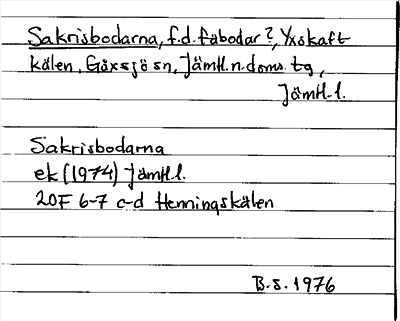 Sakrisbodarna, f.d. fäbodar?, Yxskaft-
kälen, Gåxsjö sn, Jämtl. n. doms. tg,
Jämtl. l.
Sakrisbodarna
ek (1974) Jämtl.
20F 6-7 c-d Henningskälen
B. S. 1976